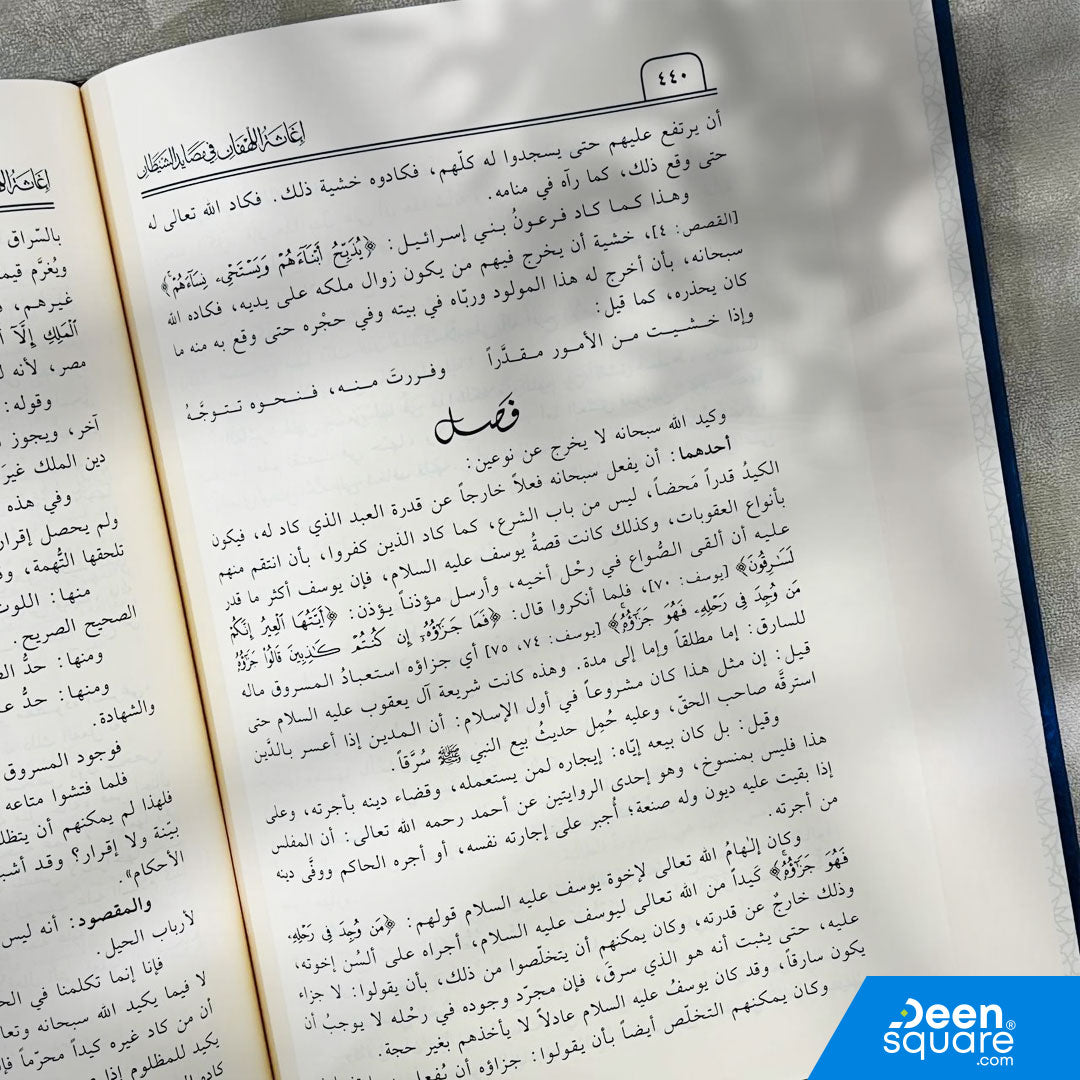 ٤٤٠
إغاثة اللهفان في مصايد الشيطان
أن يرتفع عليهم حتى يسجدوا له كلّهم، فكادوه خشية ذلك. فكاد الله تعالى له
حتى وقع ذلك، كما رآه في منامه.
وهذا كما كاد فرعونُ بني إسرائيل: ﴿يُذَبِّحُ أَبْنَاءَهُمْ وَيَسْتَحْيِۦ نِسَاءَهُمْ﴾
[القصص: ٤]، خشية أن يخرج فيهم من يكون زوال ملكه على يديه، فكاده الله
سبحانه، بأن أخرج له هذا المولود وربّاه في بيته وفي حجْره حتى وقع به منه ما
كان يحذره، كما قيل:
وإذا خشيت من الأمور مقدَّراً وفررتَ منه، فنحوه تتوجَّهُ
فصل
وكيد الله سبحانه لا يخرج عن نوعين:
أحدهما: أن يفعل سبحانه فعلاً خارجاً عن قدرة العبد الذي كاد له، فيكون
الكيدُ قدراً مَحضاً، ليس من باب الشرع، كما كاد الذين كفروا، بأن انتقم منهم
بأنواع العقوبات، وكذلك كانت قصةُ يوسف عليه السلام، فإن يوسف أكثر ما قدر
عليه أن ألقى الصُّواع في رحْل أخيه، وأرسل مؤذناً يؤذن: ﴿أَيَّتُهَا الْعِيرُ إِنَّكُمْ
لَسَارِقُونَ﴾ [يوسف: ٧٠]، فلما أنكروا قال: ﴿فَمَا جَزَاؤُهُ إِن كُنتُمْ كَاذِبِينَ قَالُوا جَزَاؤُهُ
مَن وُجِدَ فِي رَحْلِهِ فَهُوَ جَزَاؤُهُ﴾ [يوسف: ٧٤، ٧٥] أي جزاؤه استعبادُ المسروق ماله
للسارق: إما مطلقاً وإما إلى مدة. وهذه كانت شريعة آل يعقوب عليه السلام حتى
قيل: إن مثل هذا كان مشروعاً في أول الإسلام: أن المدين إذا أعسر بالدَّين
استرقَّه صاحب الحقّ، وعليه حُمِل حديثُ بيع النبي ﷺ سُرَّقاً.
وقيل: بل كان بيعه إيّاه: إيجاره لمن يستعمله، وقضاء دينه بأجرته، وعلى
هذا فليس بمنسوخ، وهو إحدى الروايتين عن أحمد رحمه الله تعالى: أن المفلس
إذا بقيت عليه ديون وله صنعة؛ أُجبر على إجارته نفسه، أو أجره الحاكم ووفَّى دينه
من أجرته.
وكان إلهامُ الله تعالى لإخوة يوسف عليه السلام قولهم: ﴿مَن وُجِدَ فِي رَحْلِهِ
فَهُوَ جَزَاؤُهُ﴾ كَيداً من الله تعالى ليوسف عليه السلام، أجراه على ألسُن إخوته،
وذلك خارجٌ عن قدرته، وكان يمكنهم أن يتخلّصوا من ذلك، بأن يقولوا: لا جزاء
عليه، حتى يثبت أنه هو الذي سرقَ، فإن مجرّد وجوده في رحْله لا يوجبُ أن
يكون سارقاً، وقد كان يوسفُ عليه السلام عادلاً لا يأخذهم بغير حجة.
وكان يمكنهم التخلّص أيضاً بأن يقولوا: جزاؤه أن يُفعل
بالسّراق
ويُغرَّم
غيرهم،
الْمَلِكِ إِلَّا
مصر، لأنه
وقوله:
آخر، ويجوز
دين الملك غيرَ
وفي هذه
ولم يحصل إقرار
تلحقها التُّهمة،
منها: اللوث
الصحيح الصريح.
ومنها: حدُّ
ومنها: حدُّ
والشهادة.
فوجود المسروق
فلما فتشوا متاعه
فلهذا لم يمكنهم أن
بيّنة ولا إقرار؟ وقد
الأحكام».
والمقصود: أنه ليس
لأرباب الحيل.
فإنا إنما تكلمنا في
لا فيما يكيد الله سبحانه
أن من كاد غيره كيداً محرّماً
يكيد للمظلوم إذا
Deen
square®
.com